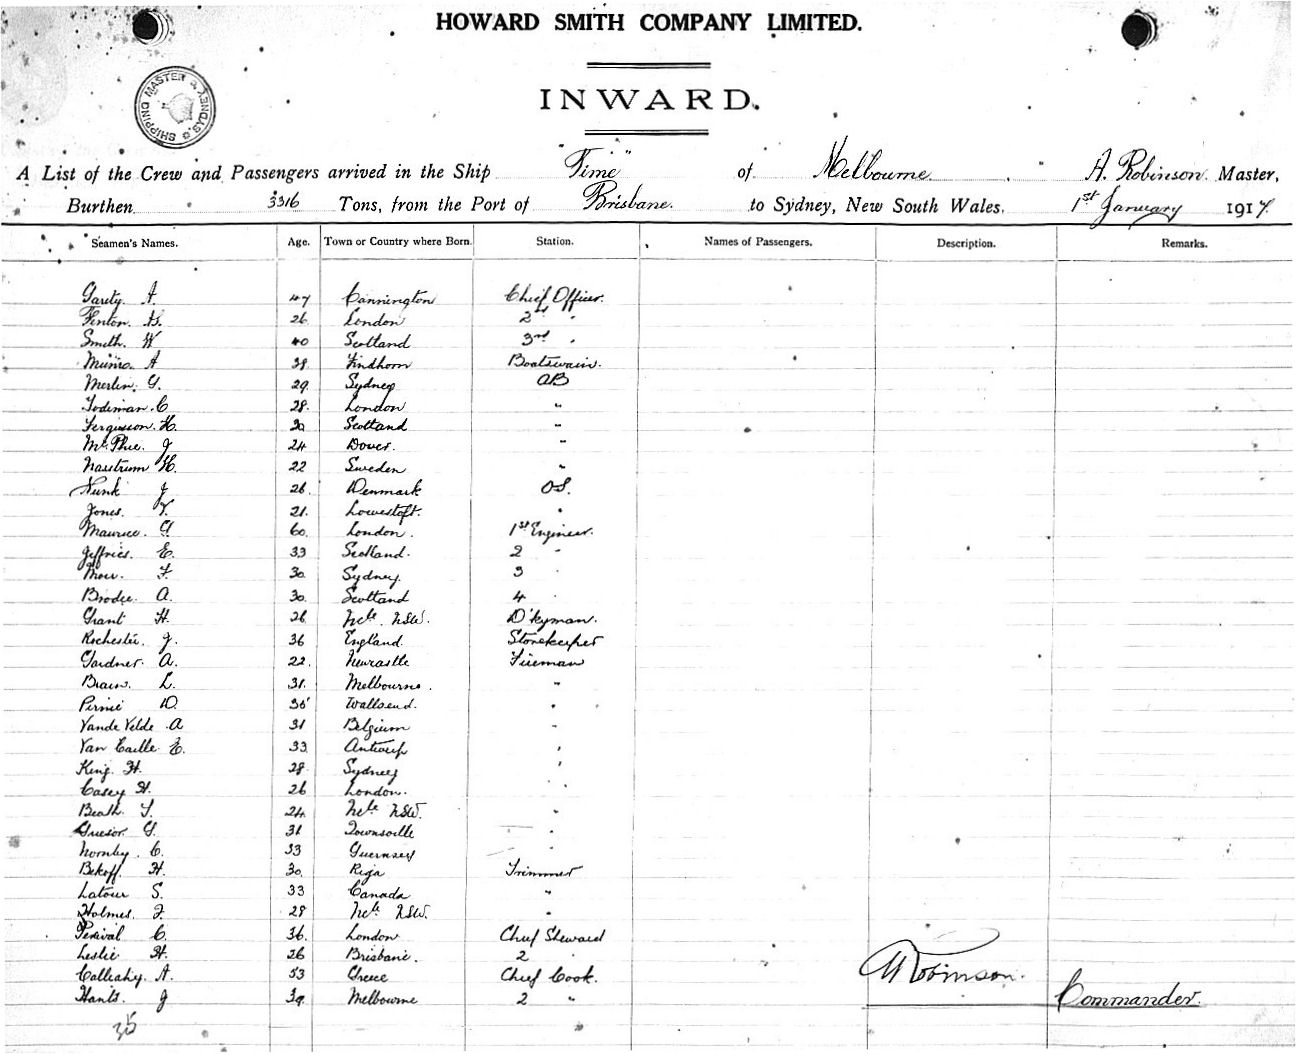 HOWARD SMITH COMPANY LIMITED.
INWARD.
SHIPPING MASTER SYDNEY
A List of the Crew and Passengers arrived in the Ship "Time" of Melbourne. A. Robinson. Master,
Burthen 3316 Tons, from the Port of Brisbane. to Sydney, New South Wales. 1st January 1917.
Seamen's Names. Age. Town or Country where Born. Station. Names of Passengers. Description. Remarks.
Garity. A. 47 Cannington Chief Officer.
Fenton. 26 London 2nd "
Smith. W 40 Scotland 3rd "
Munro. A 38 Findhorn Boatswain.
Merlin. G. 29 Sydney AB
C. 28. London "
Fergusson. H. Scotland "
McPhee. J 24 Dover. "
H. 22 Sweden "
Nunk J 26. Denmark OS.
Jones. T. 21. Lowestoft. "
Maurice. G 60. London. 1st Engineer.
Jeffries. E. 33 Scotland. 2 "
F. 30 Sydney. 3 "
Brodie. A. 30. Scotland 4 "
Grant H. 26 Ncle. NSW. D'kyman.
Rochester. J. 36 England. Storekeeper
Gardner. A. 22. Newcastle Fireman
Brain. L. 31. Melbourne. "
Pirnie D. 35 Wallsend. "
Vande Velde A 31 Belgium "
Van Caille E. 33. Antwerp "
King. H. 28 Sydney "
Casey H. 26 London. "
Beath. T. 24. Ncle NSW. "
G. 31 Townsville "
Hornby. C. 33 Guernsey "
Bekoff. H. 30. Riga Trimmer
Latour S. 33 Canada "
Holmes. F. 28 Ncle NSW. "
Percival C. 36. London Chief Steward
Leslie H. 26 Brisbane. 2 "
A. 53 Greece Chief Cook.
Hants. J 39. Melbourne 2 "
A Robinson.
Commander.
35